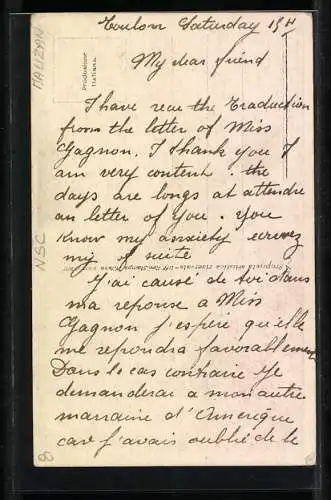 Toulon Saturday 15H
My dear friend
I have reçu the traduction
from the letter of Miss
Gagnon. I thank you I
am very content. the
days are longs at attendre
an letter of you. You
Know my anxiety ecrivez
my of suite
J'ai causé de toi dans
ma reponse a Miss
Gagnon j'espère qu'elle
me repondra favorablement
Dans le cas contraire Je
demanderai a mon autre
marraine d'Amerique
car j'avais oublié de le
Produzione
Italiana.
MAUZAN
NSC
8